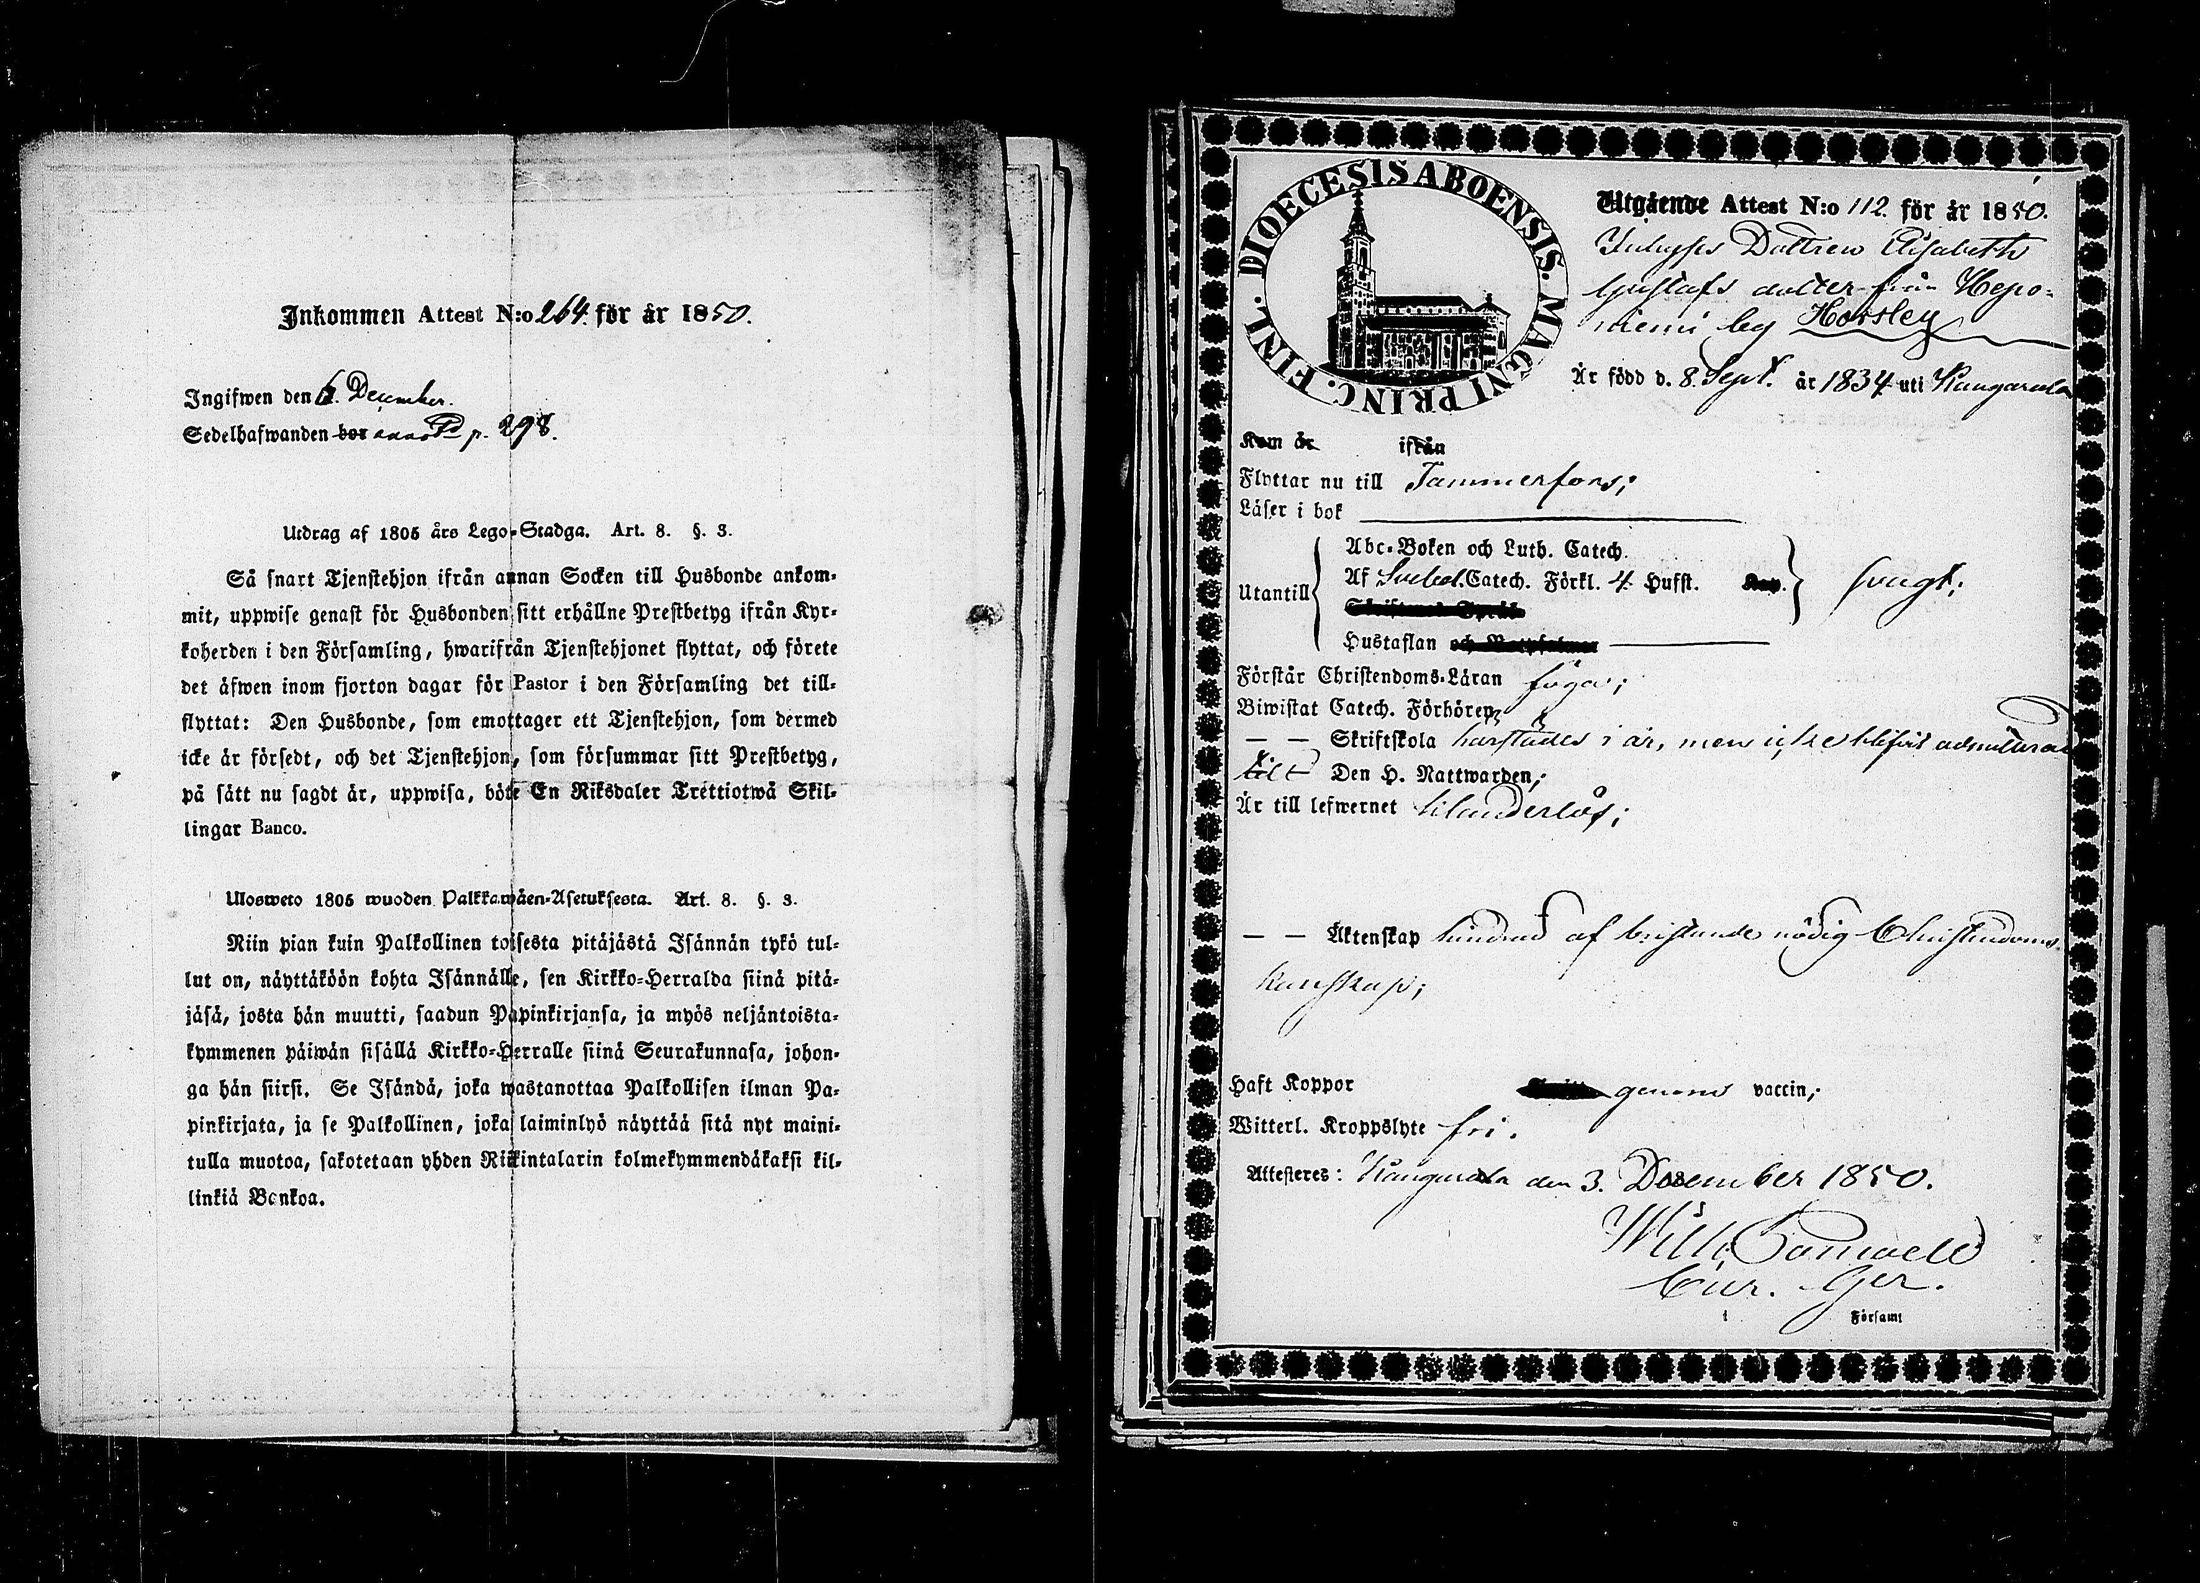 Inkommen Attest N:o 264. för år 1850.
Ingifwen den 6. December.
Sedelhafwanden bor annot. p. 298.
Utdrag af 1805 års Lego-Stadga. Art. 8. §. 3.
Så snart Tjenstehjon ifrån annan Socken till Husbonde ankom-
mit, uppwise genast för Husbonden sitt erhållne Prestbetyg ifrån Kyr-
koherden i den Församling, hwarifrån Tjenstehjonet flyttat, och förete
det äfwen inom fjorton dagar för Pastor i den Församling det till-
flyttat: Den Husbonde, som emottager ett Tjenstehjon, som dermed
icke är försedt, och det Tjenstehjon, som försummar sitt Prestbetyg,
på sätt nu sagdt är, uppwisa, böte En Riksdaler Trettiotwå Skil-
lingar Banco.
Ulosweto 1805 wuoden Palkkawäen-Asetuksesta. Art. 8. §. 3.
Niin pian kuin Palkollinen toisesta pitäjästä Isännän tykö tul-
lut on, näyttäköön kohta Isännälle, sen Kirkko-Herralda siinä pitä-
jäsä, josta hän muutti, saadun Papinkirjansa, ja myös neljäntoista-
kymmenen päiwän sisällä Kirkko-Herralle siinä Seurakunnasa, johon-
ga hän siirsi. Se Isändä, joka wastanottaa Palkollisen ilman Pa-
pinkirjata, ja se Palkollinen, joka laiminlyö näyttää sitä nyt maini-
tulla muotoa, sakotetaan yhden Riikintalarin kolmekymmendäkaksi kil-
linkiä Bankoa.
DIOECESIS ABOENSIS. MAGNI PRINC. FINL.
Utgående Attest N:o 112. för år 1850.
Inhyses Dottren Elisabeth
Gustafs dotter från Hepo-
niemi by Horsley
Är född d. 8. Sept. år 1834 uti Kangasala
Kom år ifrån
Flyttar nu till Tammerfors;
Läser i bok
Abc-Boken och Luth. Catech.
Utantill Af Svebel. Catech. Förkl. 4. Hufst. Kap. svagt;
Hustaflan
Förstår Christendoms-Läran föga;
Biwistat Catech. Förhören
— — Skriftskola härstädes i år, men icke blifvit admitterad
till Den H. Nattwarden;
Är till lefwernet klanderlös;
— — Äktenskap hindrad af bristande nödig Christendoms-
kunskap;
Haft Koppor genom vaccin;
Witterl. Kroppslyte fri.
Attesteres: Kangasala den 3. December 1850.
Församl